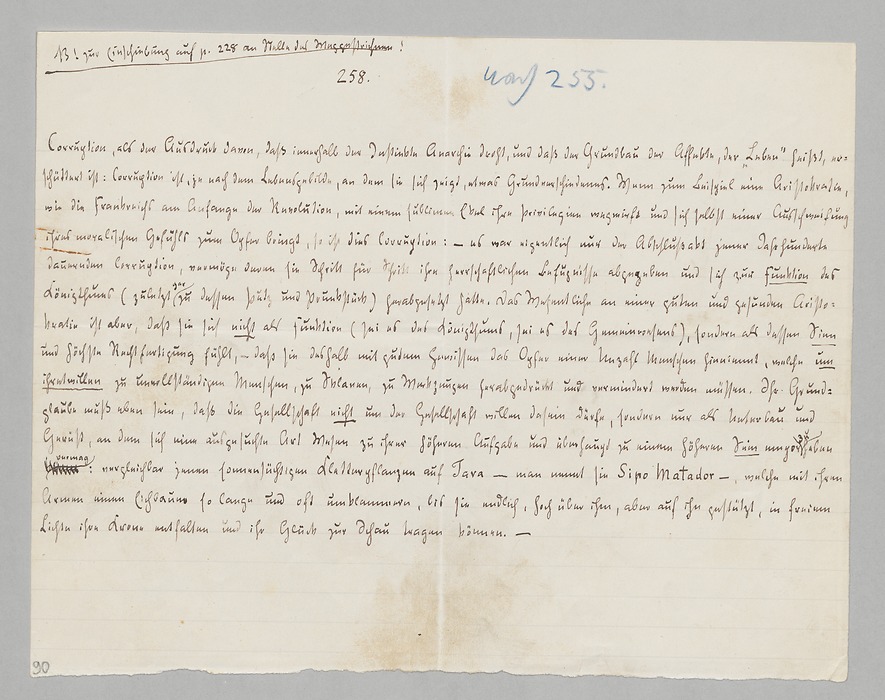 NB! zur Einschiebung auf p. 228 an Stelle des Weggestrichenen!
258.
nach 255.
Corruption, als der Ausdruck davon, daß innerhalb der Instinkte Anarchie droht, und daß der Grundbau der Affekte, der „Leben" heißt, er-
schüttert ist: Corruption ist, je nach dem Lebensgebilde, an dem sie sich zeigt, etwas Grundverschiedenes. Wenn zum Beispiel eine Aristokratie,
wie die Frankreichs am Anfange der Revolution, mit einem sublimen Ekel ihre Privilegien wegwirft und sich selbst einer Ausschweifung
ihres moralischen Gefühls zum Opfer bringt, so ist dies Corruption: — es war eigentlich nur der Abschlußakt jener Jahrhunderte
dauernden Corruption, vermöge deren sie Schritt für Schritt ihre herrschaftlichen Befugnisse abgegeben und sich zur Funktion des
Königthums (zuletzt gar zu dessen Putz und Prunkstück) herabgesetzt hatte. Das Wesentliche an einer guten und gesunden Aristo-
kratie ist aber, daß sie sich nicht als Funktion (sei es des Königthums, sei es des Gemeinwesens), sondern als dessen Sinn
und höchste Rechtfertigung fühlt, — daß sie deshalb mit gutem Gewissen das Opfer einer Unzahl Menschen hinnimmt, welche um
ihretwillen zu unvollständigen Menschen, zu Sklaven, zu Werkzeugen herabgedrückt und vermindert werden müssen. Ihr Grund-
glaube muß eben sein, daß die Gesellschaft nicht um der Gesellschaft willen dasein dürfe, sondern nur als Unterbau und
Gerüst, an dem sich eine ausgesuchte Art Wesen zu ihrer höheren Aufgabe und überhaupt zu einem höheren Sein emporzuheben
vermag: vergleichbar jenen sonnensüchtigen Kletterpflanzen auf Java — man nennt sie Sipo Matador —, welche mit ihren
Armen einen Eichbaum so lange und oft umklammern, bis sie endlich, hoch über ihm, aber auf ihn gestützt, in freiem
Lichte ihre Krone entfalten und ihr Glück zur Schau tragen können. —
90